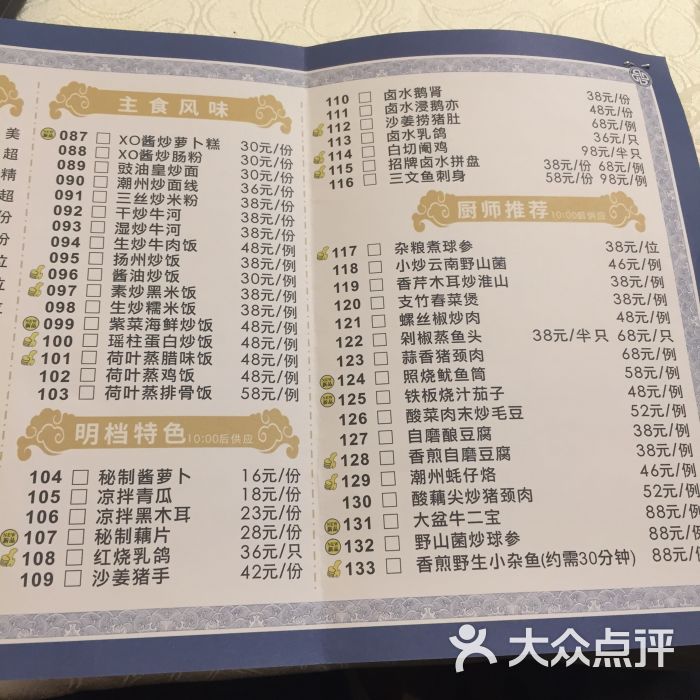 美
超
精
超
份
份
位
位
位
主食风味
NEW 新品 087 XO酱炒萝卜糕 30元/份
088 XO酱炒肠粉 30元/份
089 豉油皇炒面 30元/例
090 潮州炒面线 36元/例
091 三丝炒米粉 38元/例
092 干炒牛河 38元/例
093 湿炒牛河 38元/例
094 生炒牛肉饭 48元/例
095 扬州炒饭 38元/例
096 酱油炒饭 38元/例
097 素炒黑米饭 38元/例
098 生炒糯米饭 38元/例
NEW 新品 099 紫菜海鲜炒饭 48元/例
100 瑶柱蛋白炒饭 48元/例
101 荷叶蒸腊味饭 48元/例
102 荷叶蒸鸡饭 48元/例
103 荷叶蒸排骨饭 58元/例
明档特色 10:00后供应
104 秘制酱萝卜 16元/份
105 凉拌青瓜 18元/份
106 凉拌黑木耳 23元/份
NEW 新品 107 秘制藕片 28元/份
108 红烧乳鸽 36元/只
109 沙姜猪手 42元/份
110 卤水鹅肾 38元/份
111 卤水浸鹅亦 48元/份
112 沙姜捞猪肚 68元/例
113 卤水乳鸽 36元/只
114 白切阉鸡 98元/半只
115 招牌卤水拼盘 38元/份 68元/例
116 三文鱼刺身 58元/份 98元/例
厨师推荐 10:00后供应
117 杂粮煮球参 38元/位
118 小炒云南野山菌 46元/例
119 香芹木耳炒淮山 38元/例
120 支竹春菜煲 38元/例
121 螺丝椒炒肉 48元/例
122 剁椒蒸鱼头 38元/半只 68元/只
123 蒜香猪颈肉 68元/例
NEW 新品 124 照烧鱿鱼筒 58元/例
NEW 新品 125 铁板烧汁茄子 48元/例
126 酸菜肉末炒毛豆 52元/例
127 自磨酿豆腐 38元/例
128 香煎自磨豆腐 38元/例
129 潮州蚝仔烙 46元/例
130 酸藕尖炒猪颈肉 52元/例
NEW 新品 131 大盆牛二宝 88元/例
NEW 新品 132 野山菌炒球参 88元/例
133 香煎野生小杂鱼(约需30分钟) 88元/例
大众点评